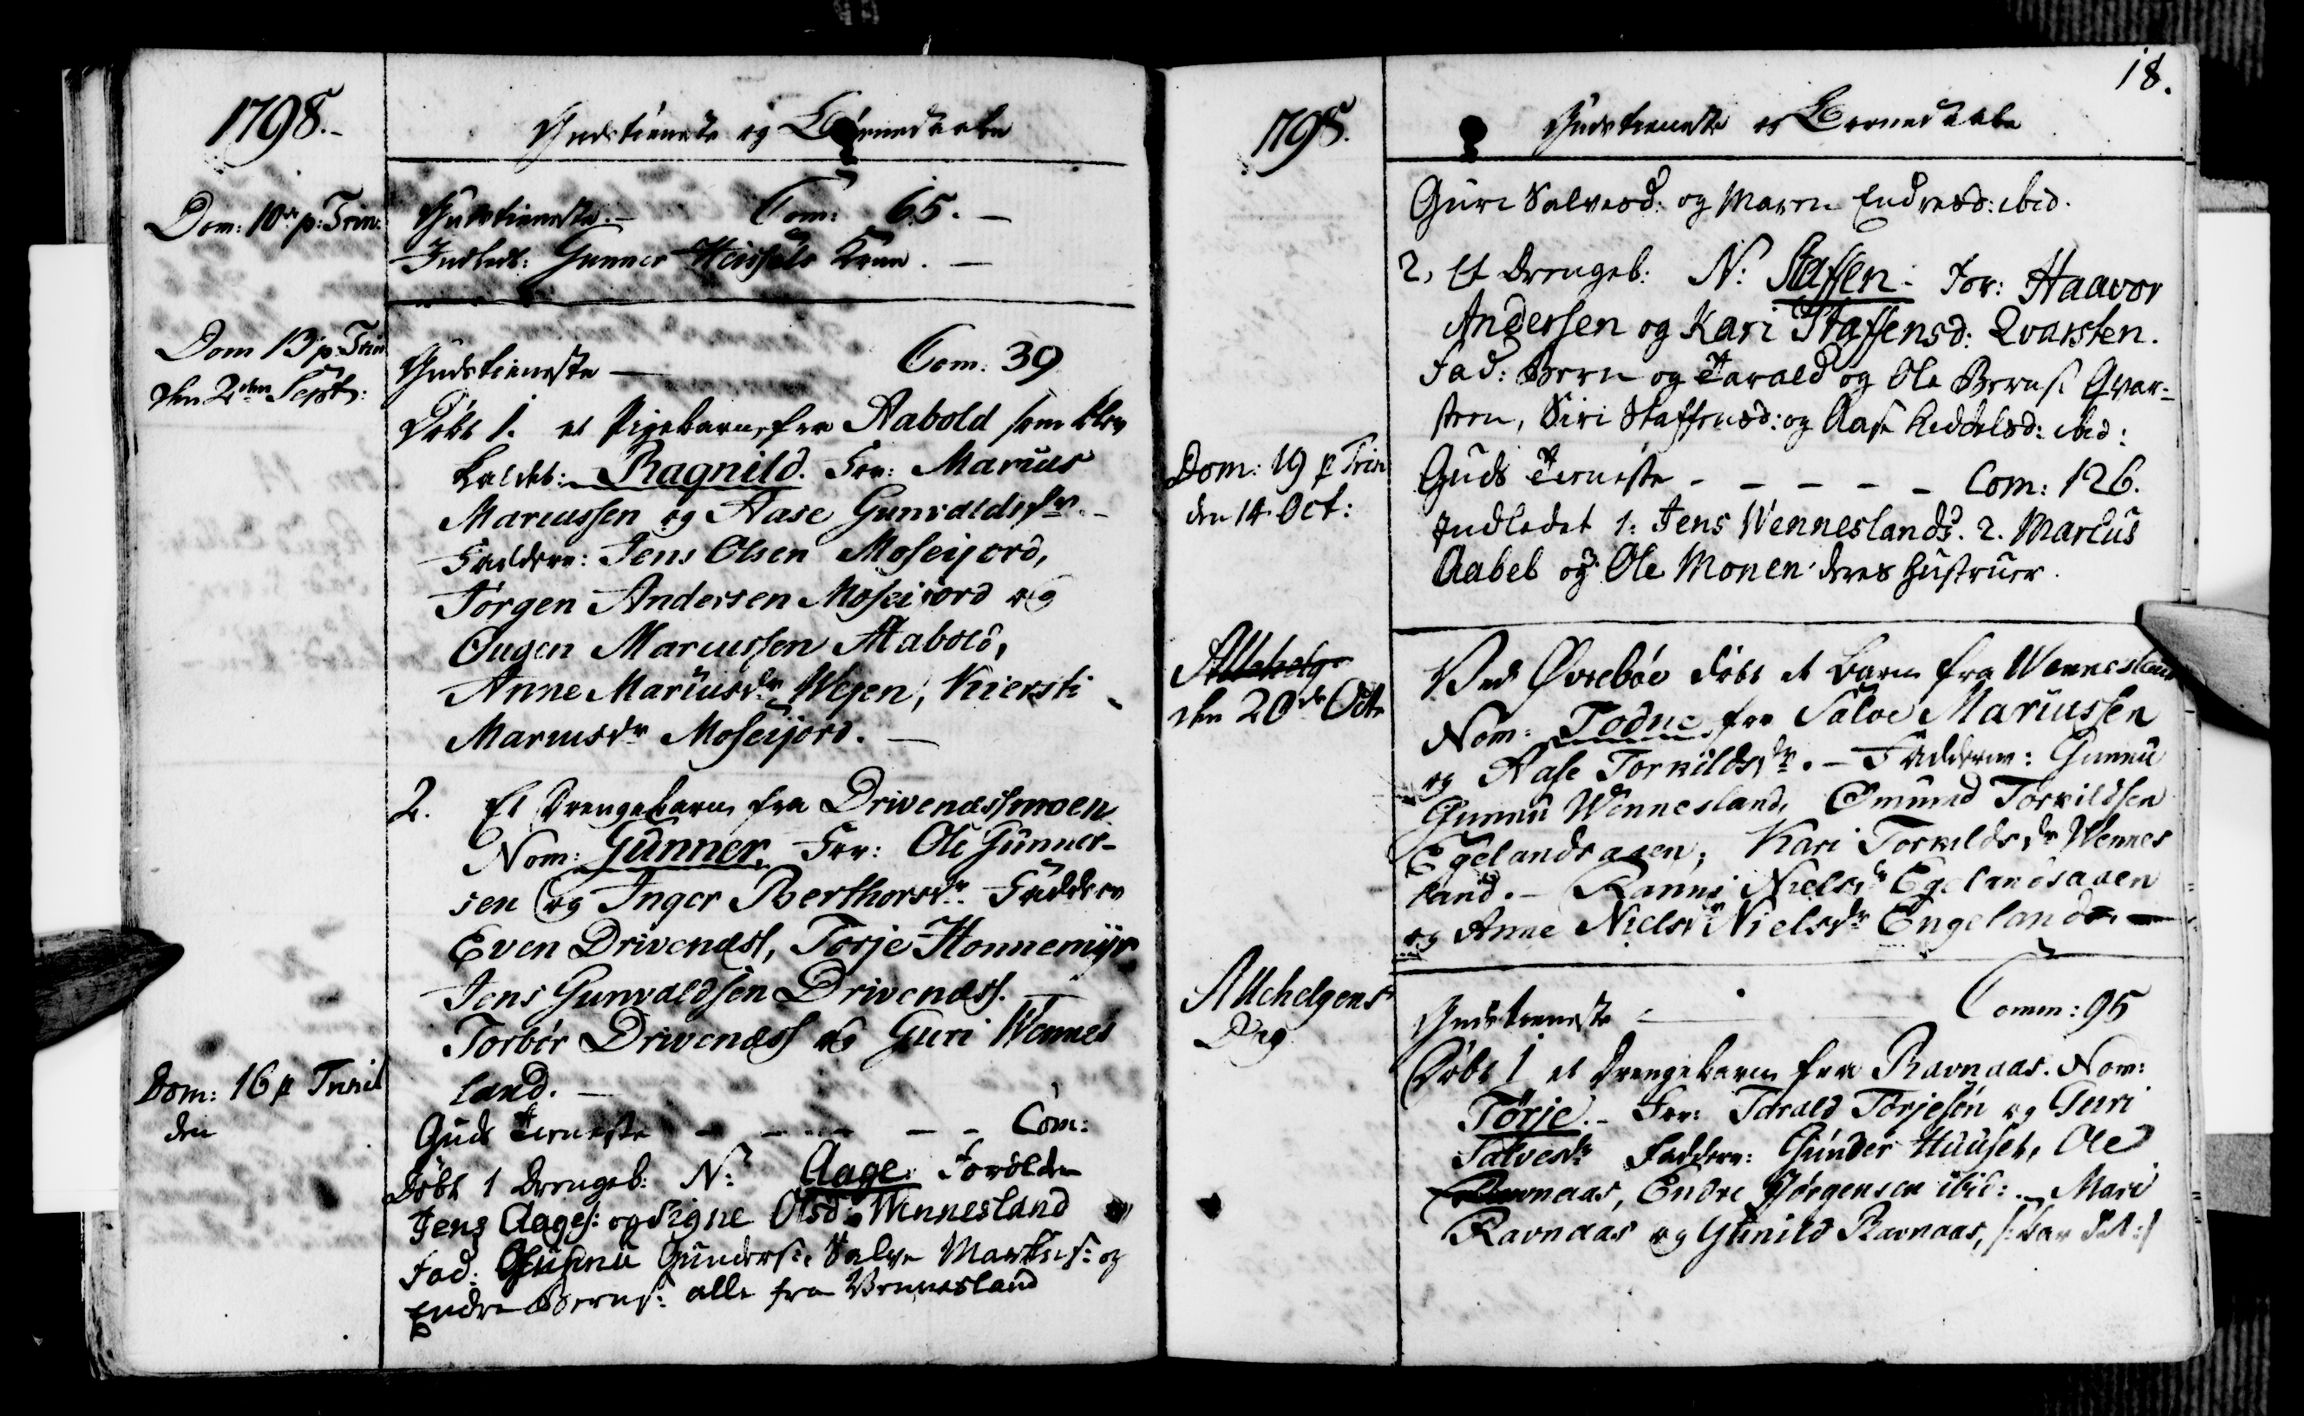 1798.-
Gudstieneste og Börnedaabe
Dom: 10de p: Trin:
Gudstieneste.- Com: 65.-
Indledt: Gunner Kone.-
Dom 13 p: Trin
den 2den Septb:
Gudstieneste — Com: 39
Döbt 1. et Pigebarn fra Aabold som blev
kaldet: Ragnild. For: Marcus
Marcussen og Aase Gunvaldsdr.-
Faddere: Jens Olsen Moseijord,
Jörgen Andersen Moseijord og
Ougen Marcussen Aabold,
Anne Marcusdr Wejen, Kiersti
Marcusdr Moseijord.-
2. Et Drengebarn fra Drivenæssmoen
Nom: Gunner. For: Ole Gunner-
sen og Inger Berthorsdr Faddere
Even Drivenæss, Torje Honnemÿr
Jens Gunvaldsen Drivenæss.
Torbör Drivenæss og Guri Wennes
land.-
Dom: 16 p Trinit
den
Guds Tieneste - - - - - Com:
Döbt 1 Drengeb: N: Aage Forældre
Jens Aages: og Signe Olsd: Wennesland
Fad: Gunders: Salve Markus: og
Endre Berns: alle fra Vennesland
18.
1798.
Gudstieneste og Börnedaabe
Guri Salvesd: og Maren Endresd: ibid.
2, Et Drengeb: N: Staffen- For: Haavor
Andersen og Kari Staffensd: Qvarsten.
Fad: Bern og Tarald og Ole Berns: Qvar-
steen, Siri Staffensd: og Aase Keddelsd: ibid:
Dom: 19 p Trin
den 14. Oct:
Guds Tieneste - - - - - Com: 126.
Indledet 1: Jens Wenneslands. 2. Marcus
Aabel og Ole Monen deres Hustruer.
Allehelg
den 20de Octr
Ved Øvrebøe døbt et Barn fra Wennesland
Nom: Todne for Salve Marcussen
og Aase Torkildsdr.- Faddere: Gunnu
Gunnu Wennesland, Omund Torkildsen
Egelandsaaen, Kari Torkildsdr Wennes
land.- Ranni Nielsdr Egelandsaaen
og Anne Nielsdr Nielsdr Engeland.-
Allehelgens
Dag
Gudstieneste - Comm: 95
Döbt 1 et Drengebarn fra Ravnaas. Nom:
Torje.- For: Tarald Torjesön og Guri
Salvesdr Faddere: Gunder Huuset, Ole
Ravnaas, Endre Jörgensen ibid:. Mari
Ravnaas og Gunild Ravnaas, /: bar det :/